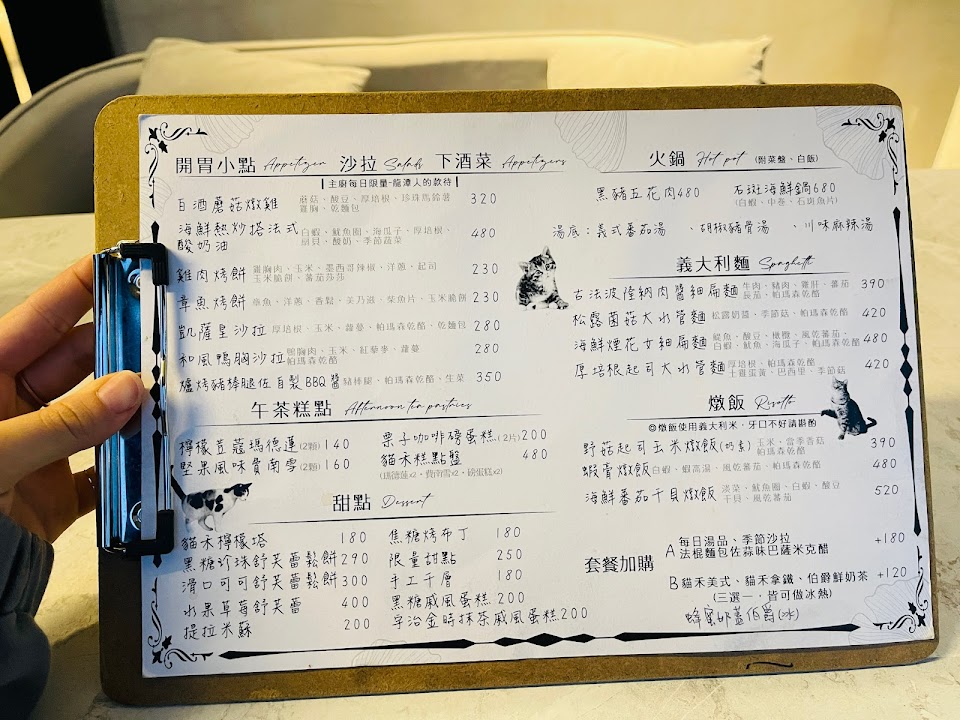 開胃小點 Appetizer 沙拉 Salads 下酒菜 Appetizers
主廚每日限量-龍潭人的款待
白酒蘑菇燉雞 蘑菇、酸豆、厚培根、珍珠馬鈴薯 320
雞胸、乾麵包
海鮮熱炒塔法式 白蝦、魷魚圈、海瓜子、厚培根、 480
酸奶油 廚貝、酸奶、季節蔬菜
雞肉烤餅 雞胸肉、玉米、墨西哥辣椒、洋蔥、起司 230
玉米脆餅、蕃茄莎莎
章魚烤餅 章魚、洋蔥、香鬆、美乃滋、柴魚片、玉米脆餅 230
凱薩皇沙拉 厚培根、玉米、蘿蔓、帕瑪森乾酪、乾麵包 280
和風鴨胸沙拉 鴨胸肉、玉米、紅藜麥、蘿蔓 280
帕瑪森乾酪
爐烤豬棒腿佐自製BBQ醬 豬棒腿、帕瑪森乾酪、生菜 350
午茶糕點 Afternoon tea pastries
檸檬荳蔻瑪德蓮(2顆) 140
堅果風味費南雪(2顆) 160
栗子咖啡磅蛋糕(2片) 200
貓禾糕點盤 480
(瑪德蓮x2、費南雪x2、磅蛋糕x2)
甜點 Dessert
貓禾檸檬塔 180
黑糖珍珠舒芙蕾鬆餅 290
滑口可可舒芙蕾鬆餅 300
水果草莓舒芙蕾 400
提拉米蘇 200
焦糖烤布丁 180
限量甜點 250
手工千層 180
黑糖戚風蛋糕 200
宇治金時抹茶戚風蛋糕 200
火鍋 Hot pot (附菜盤、白飯)
黑豬五花肉 480
石斑海鮮鍋 680
(白蝦、中卷、石斑魚片)
湯底：義式番茄湯 、胡椒豬骨湯 、川味麻辣湯
義大利麵 Spaghetti
古法波隆納肉醬細扁麵 牛肉、豬肉、雞肝、蕃茄 390
長茄、帕瑪森乾酪
松露菌菇大水管麵 松露奶醬、季節菇、帕瑪森乾酪 420
海鮮煙花女細扁麵 鯷魚、酸豆、橄欖、風乾蕃茄、 480
白蝦、魷魚、海瓜子、帕瑪森乾酪
厚培根起司大水管麵 厚培根、帕瑪森乾酪、 420
土雞蛋黃、巴西里、季節菇
燉飯 Risotto
◎燉飯使用義大利米，牙口不好請斟酌
野菇起司玉米燉飯(奶素) 玉米、當季香菇 390
帕瑪森乾酪
蝦膏燉飯 白蝦、蝦高湯、風乾蕃茄、帕瑪森乾酪 480
海鮮番茄干貝燉飯 淡菜、魷魚圈、白蝦、酸豆 520
干貝、風乾蕃茄
套餐加購
A 每日湯品、季節沙拉 +180
法棍麵包佐蒜味巴薩米克醋
B 貓禾美式、貓禾拿鐵、伯爵鮮奶茶 +120
(三選一，皆可做冰熱)
蜂蜜奶蓋伯爵(冰)